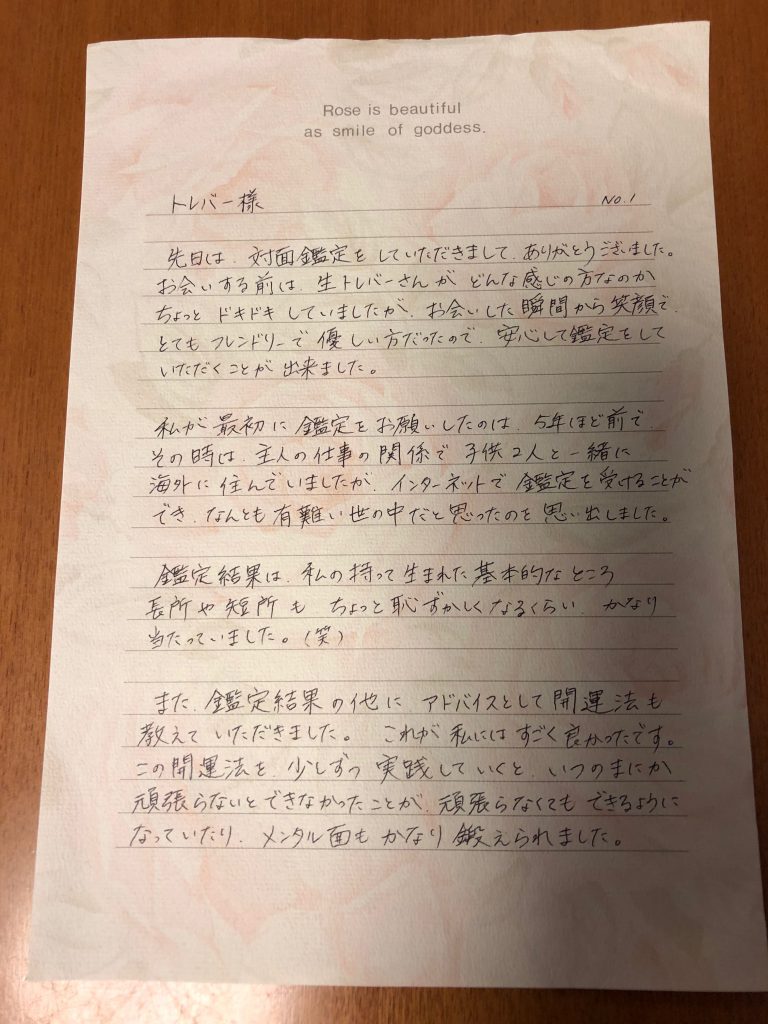 Rose is beautiful
as smile of goddess.
トレバー様 No.1
先日は、対面鑑定をしていただきまして、ありがとうございました。
お会いする前は、生トレバーさんが どんな感じの方なのか
ちょっと ドキドキ していましたが、お会いした瞬間から笑顔で、
とても フレンドリーで 優しい方だったので、安心して鑑定をして
いただくことが 出来ました。
私が最初に鑑定をお願いしたのは、5年ほど前で、
その時は、主人の仕事の関係で 子供2人と一緒に
海外に住んでいましたが、インターネットで 鑑定を受けることが
でき、なんとも有難い世の中だと思ったのを思い出しました。
鑑定結果は、私の持って生まれた基本的なところ
長所や短所も ちょっと恥ずかしくなるくらい、かなり
当たっていました。(笑)
また、鑑定結果の他に アドバイスとして開運法も
教えていただきました。 これが私にはすごく良かったです。
この開運法を、少しずつ 実践していくと、いつのまにか
頑張らないとできなかったことが、頑張らなくても できるように
なっていたり、メンタル面も かなり鍛えられました。